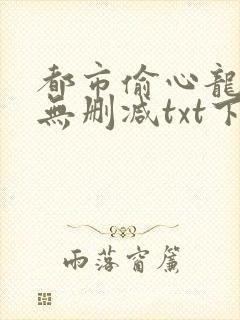 都市偷心龍
無删减txt下
雨落窗簾